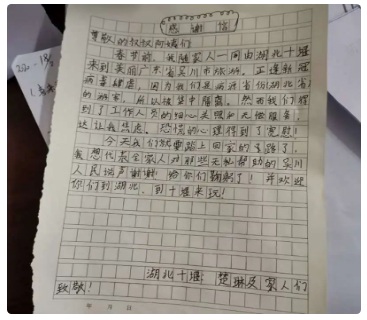 感谢信
尊敬的叔叔阿姨们
春节前,我随家人一同由湖北十堰
来到美丽广东省吴川市旅游。正逢新冠
病毒肆虐,因为我们是两部省份湖北省
的游客,所以被集中隔离。然而我们得
到了工作人员的细心关照和无偿服务,
这让我焦虑、恐慌的心理得到了宽慰!
今天我们就要踏上回家的幸路了,
我想代表全家人对那些无私帮助的吴川
人民说声谢谢!给你们鞠躬了!并欢迎
你们到湖北、到十堰来玩!
湖北十堰:楚琳及家人们
致敬!
年 月 日